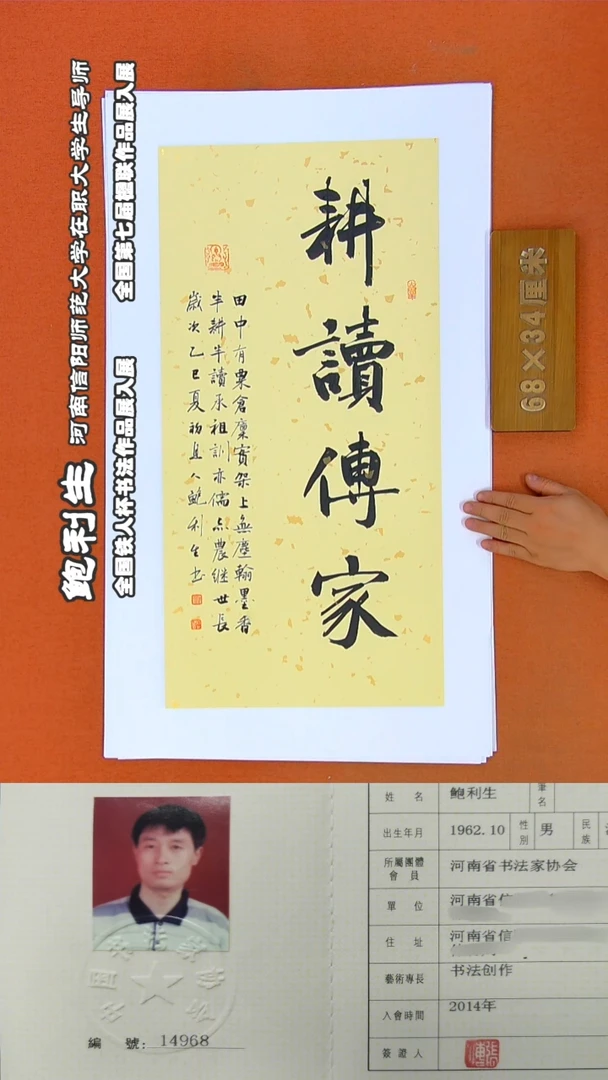 鲍利生 河南信阳师范大学在职大学生导师
全国铁人杯书法作品展入展 全国第七届楹联作品展入展
耕讀傳家
田中有粟倉廩實架上無塵翰墨香
半耕半讀承祖訓亦儒亦農继世長
歲次乙巳夏初息人鲍利生书
68×34厘米
姓 名 鲍利生 筆名
出生年月 1962.10 性別 男 民族
所屬團體會員 河南省书法家协会
單 位 河南省信
住 址 河南省信
藝術專長 书法创作
入會時間 2014年
簽證人
編 號: 14968